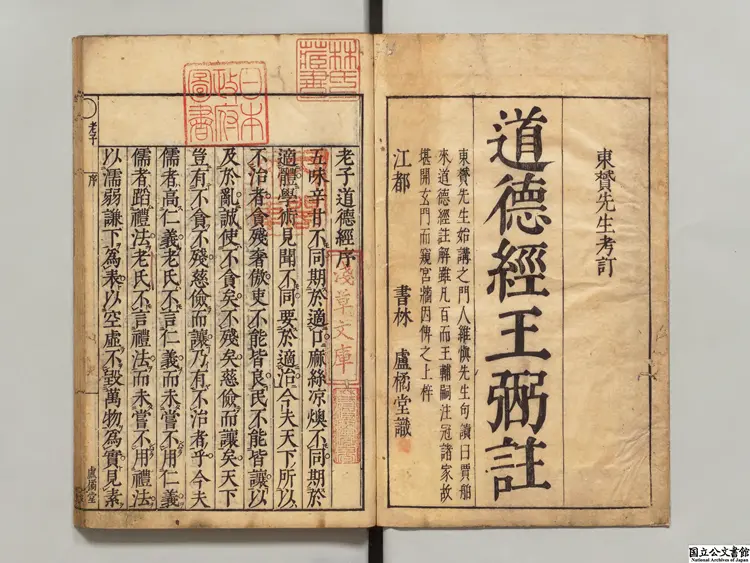 東贇先生考訂
道德經王弼註
東贇先生始講之門人維愼先生句讀曰賈舶
來道德經註解雖凡百而王輔嗣注冠諸家故
堪開玄門而窺宮牆因俾之上梓
江都 書林 盧橘堂識
林氏藏書
日本政府圖書
淺草文庫
老子道德經序
五味辛甘不同期於適口麻絲凉燠不同期於
適體學術見聞不同要於適治今夫天下所以
不治者貪殘奢傲吏不能皆良民不能皆讓以
及於亂誠使不貪矣不殘矣慈儉而讓矣天下
豈有不貪不殘慈儉而讓乃有不治者乎今夫
儒者高仁義老氏不言仁義而未嘗不用仁義
儒者蹈禮法老氏不言禮法而未嘗不用禮法
以濡弱謙下爲表以空虛不毀萬物爲實見素
老子 序 盧橘堂
国立公文書館
National Archives of Japan